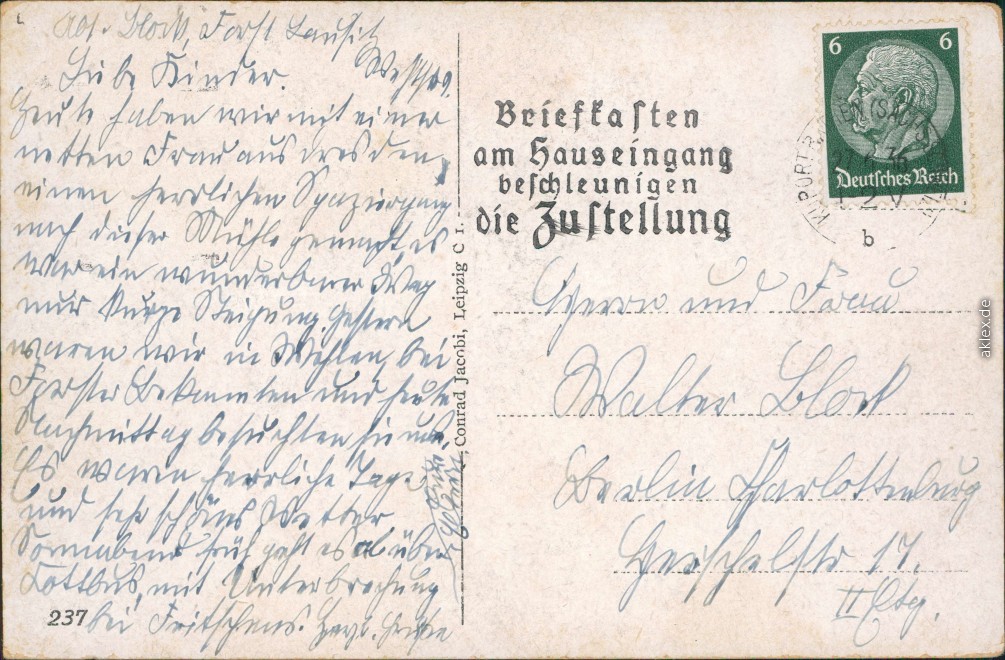 Abs. Block, Forst Lausitz
Liebe Kinder.
Heute haben wir mit einer
netten Frau aus Dresden,
einen herrlichen Spaziergang
nach dieser Mühle gemacht, es
war ein wunderbarer Weg
nur kurze Steigung. Gestern
waren wir in Wehlen, bei
Forster Bekannten und heute
Nachmittag besuchten sie uns.
Es waren herrliche Tage
und sehr schönes Wetter.
Sonnabend früh geht es ab über
Cottbus, mit Unterbrechung
bei Fritschens. Herzl. Grüße
Eltern
237
Conrad Jacobi, Leipzig C 1.
Briefkasten
am Hauseingang
beschleunigen
die Zustellung
6 6
Deutsches Reich
KURORT RATHEN (SÄCHS
36
b
Herrn und Frau
Walter Block
Berlin Charlottenburg
Herschelstr 17.
II Etg.
aklex.de